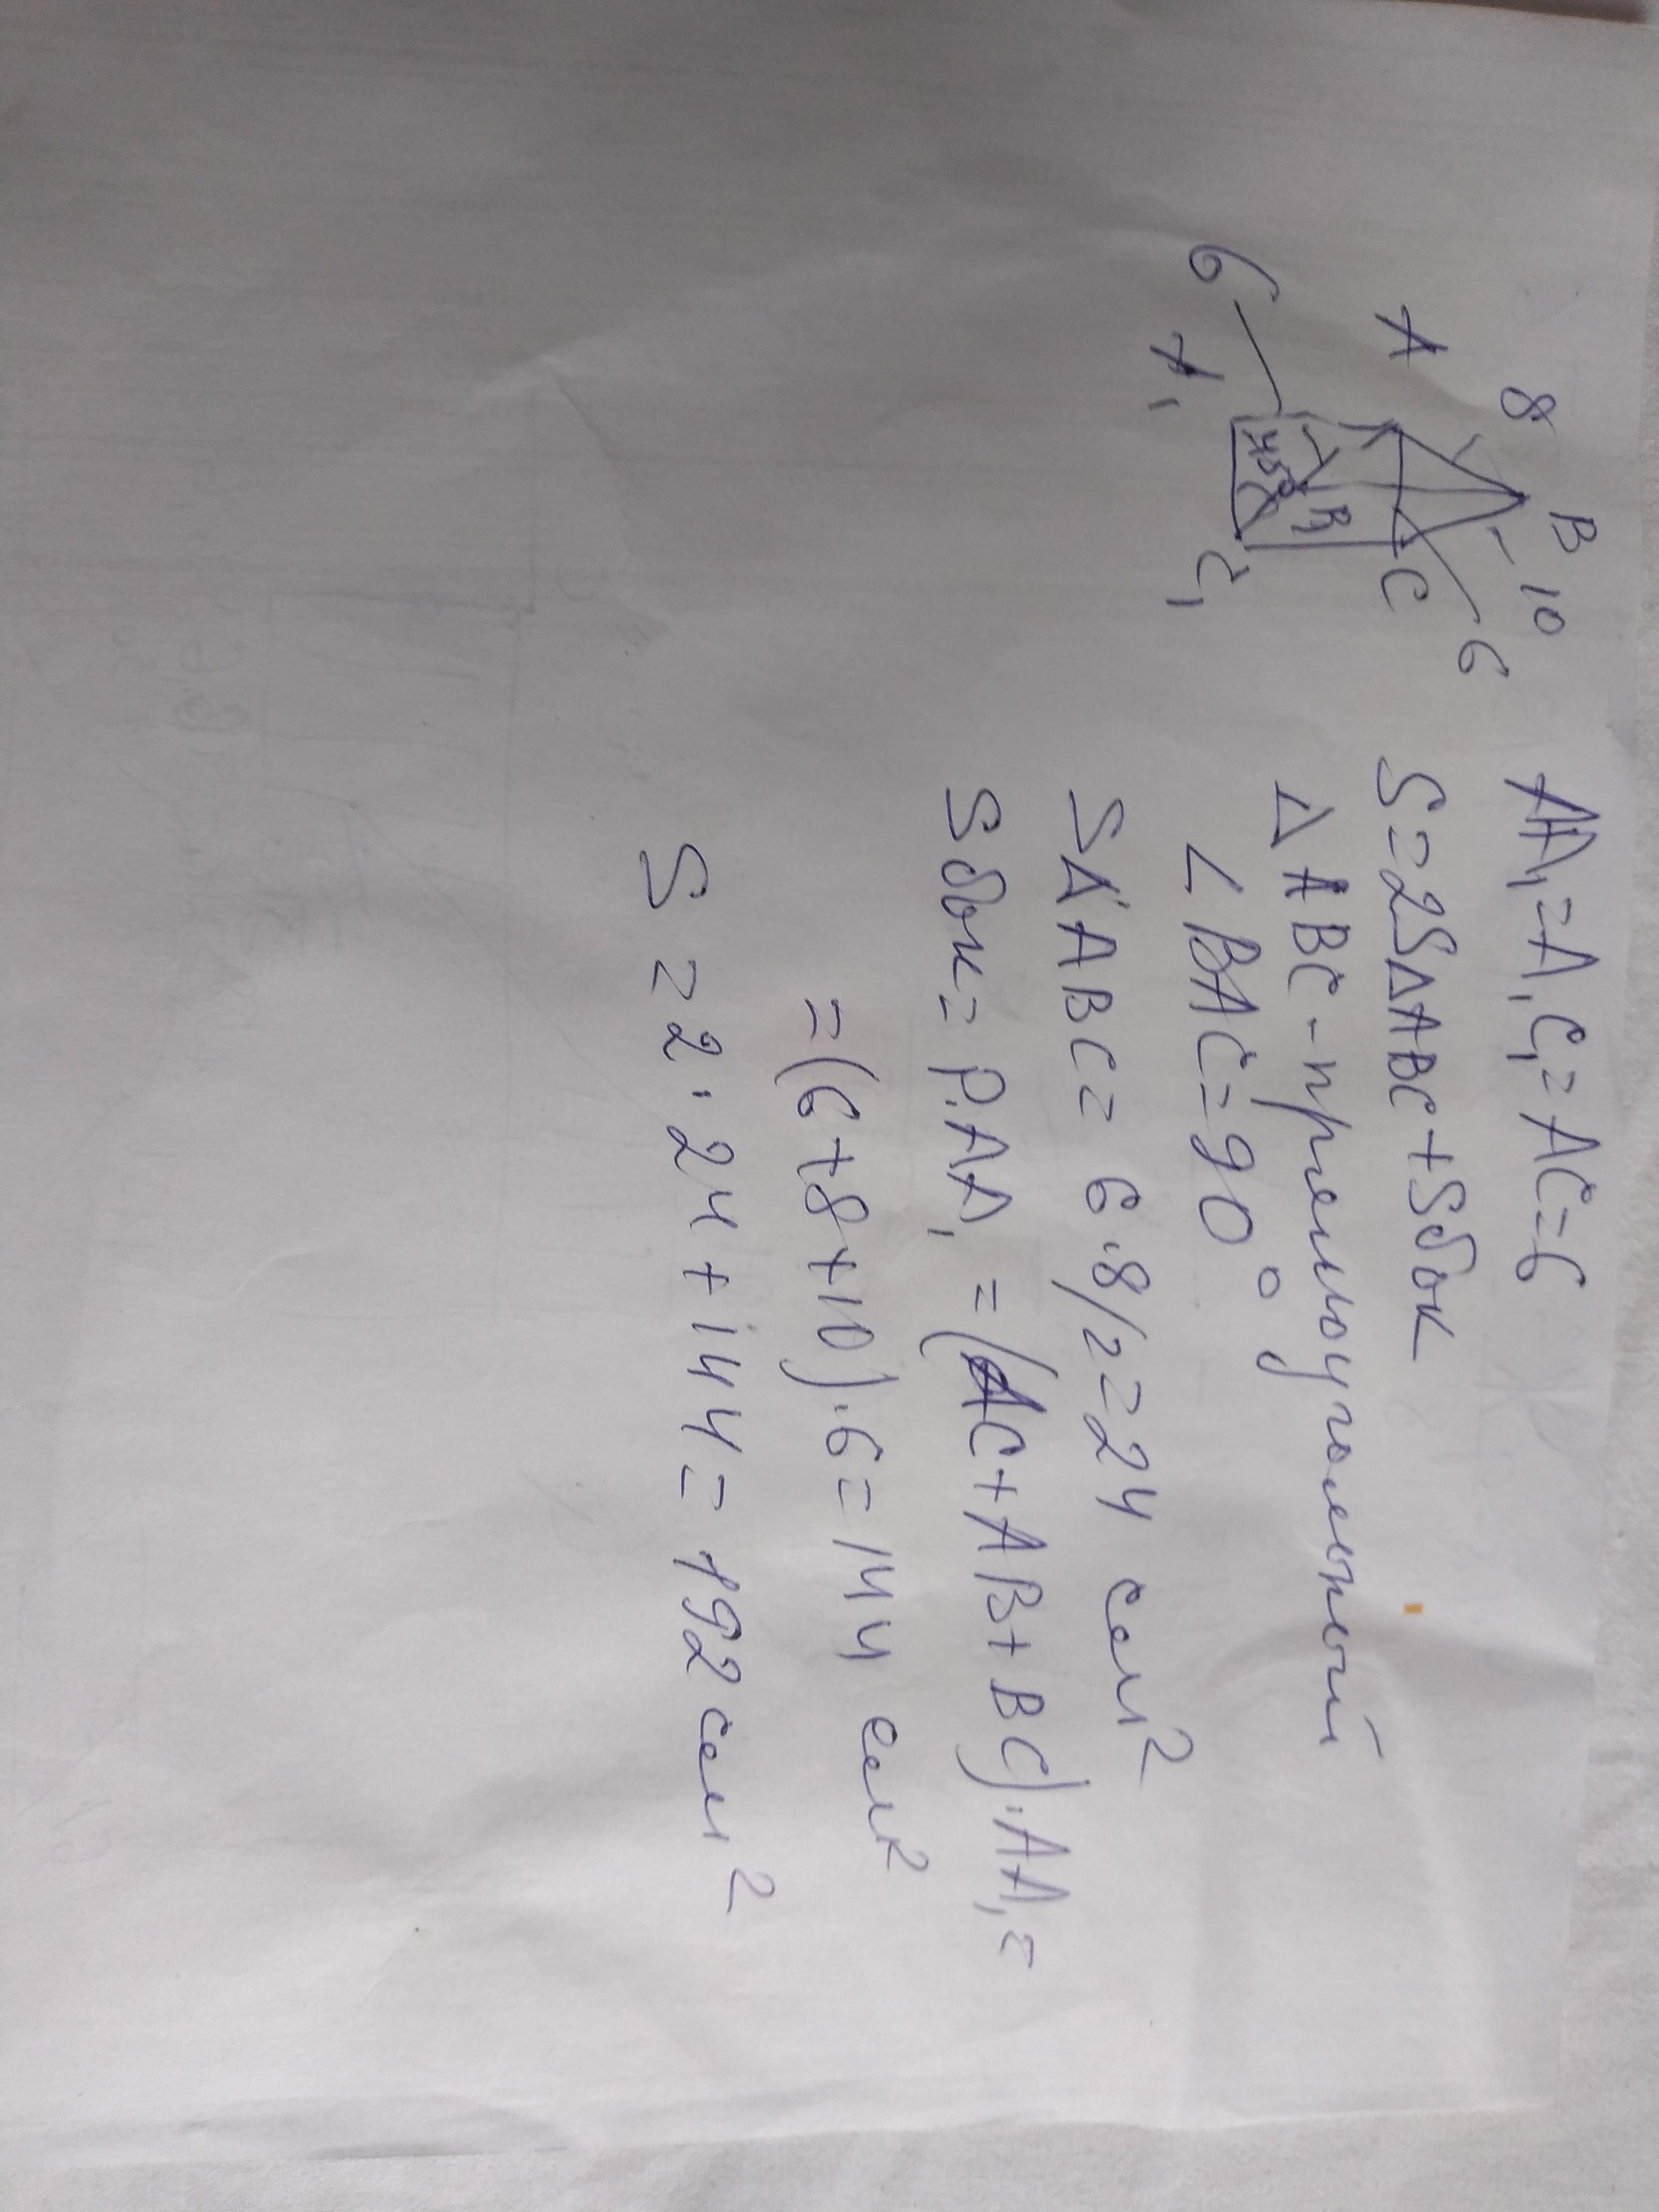 B
8
10
A
C
6
B₁
6
45°
A₁
C₁
AA₁=A₁C₁=AC=6
S=2SΔABC+Sбок
ΔABC-прямоугольный
∠BAC=90°
SΔABC= 6·8/2=24 см²
Sбок=P·AA₁=(AC+AB+BC)·AA₁=
=(6+8+10)·6=144 см²
S=2·24+144=192см²